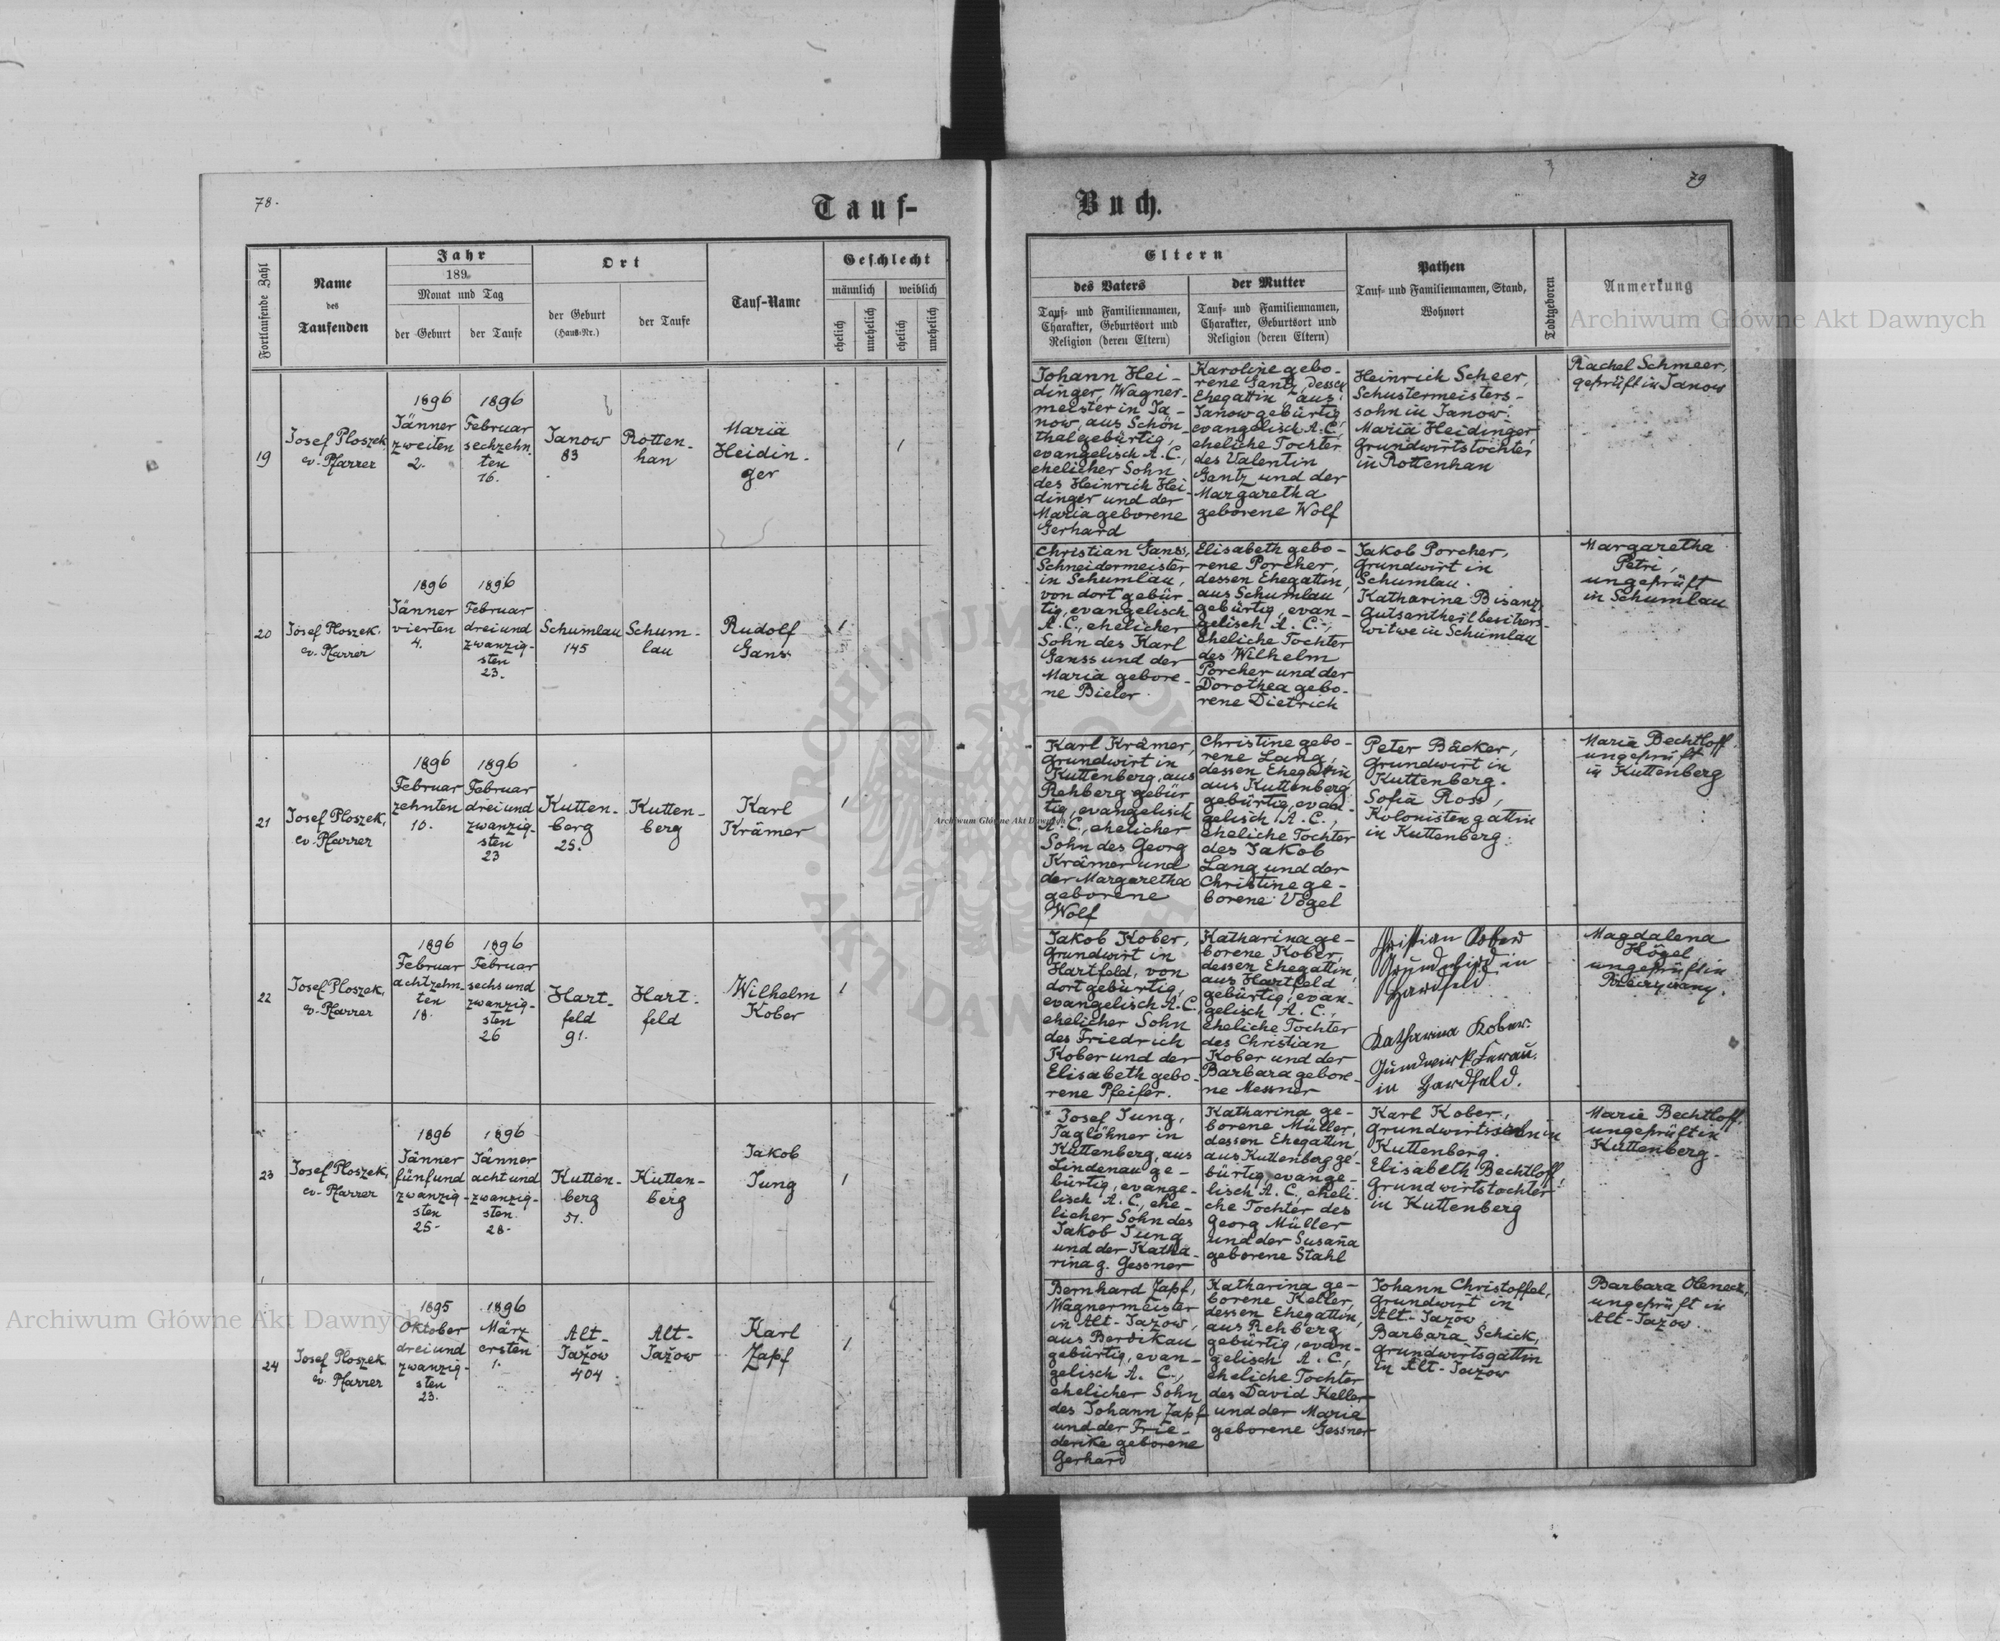 78.
79
Tauf-
Buch.
Fortlaufende Zahl
Name
des
Taufenden
Jahr
189
Monat und Tag
der Geburt
der Taufe
Ort
der Geburt
(Haus-Nr.)
der Taufe
Tauf-Name
Geschlecht
männlich
weiblich
ehelich
unehelich
ehelich
unehelich
Eltern
des Vaters
Tauf- und Familiennamen,
Charakter, Geburtsort und
Religion (deren Eltern)
der Mutter
Tauf- und Familiennamen,
Charakter, Geburtsort und
Religion (deren Eltern)
Pathen
Tauf- und Familiennamen, Stand,
Wohnort
Todtgeboren
Anmerkung
19
Josef Ploszek,
ev. Pfarrer
1896
Jänner
zweiten
2.
1896
Februar
sechzehn
ten
16.
Janow
83
Rotten-
han
Maria
Heidin-
ger
1
Johann Hei-
dinger, Wagner-
meister in Ja-
now, aus Schön
thal gebürtig,
evangelisch A.C.,
ehelicher Sohn
des Heinrich Hei-
dinger und der
Maria geborene
Gerhard
Karoline gebo-
rene Gantz, dessen
Ehegattin, aus
Janow gebürtig
evangelisch A.C.,
eheliche Tochter
des Valentin
Gantz und der
Margaretha
geborene Wolf
Heinrich Scheer,
Schustermeisters-
sohn in Janow.
Maria Heidinger
Grundwirtstochter
in Rottenhan
Rachel Schmeer,
geprüft in Janow
20
Josef Ploszek,
ev. Pfarrer
1896
Jänner
vierten
4.
1896
Februar
drei und
zwanzig-
sten
23.
Schumlau
145
Schum-
lau
Rudolf
Gans
1
Christian Ganss,
Schneidermeister
in Schumlau,
von dort gebür
tig, evangelisch
A.C., ehelicher
Sohn des Karl
Ganss und der
Maria gebore-
ne Bieler
Elisabeth gebo-
rene Porcher,
dessen Ehegattin,
aus Schumlau
gebürtig, evan-
gelisch A.C.,
eheliche Tochter
des Wilhelm
Porcher und der
Dorothea gebo-
rene Dietrich
Jakob Porcher,
Grundwirt in
Schumlau.
Katharina Bisanz,
Gutsantheilbesitzers-
witwe in Schumlau
Margaretha
Petri,
ungeprüft
in Schumlau
21
Josef Ploszek,
ev. Pfarrer
1896
Februar
zehnten
10.
1896
Februar
drei und
zwanzig-
sten
23
Kutten-
berg
25.
Kutten-
berg
Karl
Krämer
1
Karl Krämer,
Grundwirt in
Kuttenberg, aus
Rehberg gebür
tig, evangelisch
A.C., ehelicher
Sohn des Georg
Krämer und
der Margaretha
geborene
Wolf
Christine gebo-
rene Lang,
dessen Ehegattin,
aus Kuttenberg
gebürtig, evan-
gelisch A.C.,
eheliche Tochter
des Jakob
Lang und der
Christine ge-
borene Vogel
Peter Bäcker,
Grundwirt in
Kuttenberg.
Sofia Ross,
Kolonistengattin
in Kuttenberg.
Maria Bechtloff
ungeprüft
in Kuttenberg
22
Josef Ploszek,
ev. Pfarrer
1896
Februar
achtzehn-
ten
18.
1896
Februar
sechs und
zwanzig-
sten
26
Hart-
feld
91.
Hart-
feld
Wilhelm
Kober
1
Jakob Kober,
Grundwirt in
Hartfeld, von
dort gebürtig,
evangelisch A.C.,
ehelicher Sohn
des Friedrich
Kober und der
Elisabeth gebo-
rene Pfeifer.
Katharina ge-
borene Kober,
dessen Ehegattin,
aus Hartfeld
gebürtig, evan-
gelisch A.C.,
eheliche Tochter
des Christian
Kober und der
Barbara gebore-
ne Messner
Christian Kober
Grundwird in
Hardfeld
Katharina Kober.
in Hardfeld.
Magdalena
Högel
ungeprüft in
23
Josef Ploszek,
ev. Pfarrer
1896
Jänner
fünf und
zwanzig-
sten
25.
1896
Jänner
acht und
zwanzig-
sten
28.
Kutten-
berg
51.
Kutten-
berg
Jakob
Jung
1
Josef Jung,
Taglöhner in
Kuttenberg, aus
Lindenau ge-
bürtig, evange-
lisch A.C., ehe-
licher Sohn des
Jakob Jung
und der Katha-
rina g. Gessner
Katharina ge-
borene Müller,
dessen Ehegattin
aus Kuttenberg ge-
bürtig, evange-
lisch A.C., eheli-
che Tochter des
Georg Müller
und der Susaña
geborene Stahl
Karl Kober,
Grundwirtssohn in
Kuttenberg.
Elisabeth Bechtloff,
Grundwirtstochter
in Kuttenberg
Marie Bechtloff,
ungeprüft in
Kuttenberg.
24
Josef Ploszek
ev. Pfarrer
1895
Oktober
drei und
zwanzig-
sten
23.
1896
März
ersten
1.
Alt-
Jažow
404
Alt-
Jažow
Karl
Zapf
1
Bernhard Zapf,
Wagnermeister
in Alt-Jazow,
aus Berdikau
gebürtig, evan-
gelisch A.C.,
ehelicher Sohn
des Johann Zapf
und der Frie-
derike geborene
Gerhard
Katharina ge-
borene Keller,
dessen Ehegattin,
aus Rehberg
gebürtig, evan-
gelisch A.C.,
eheliche Tochter
des David Keller
und der Maria
geborene Gessner
Johann Christoffel,
Grundwirt in
Alt-Jažow
Barbara Schick,
Grundwirtsgattin
in Alt-Jažow
Barbara Oleneck,
ungeprüft in
Alt-Jažow.
Archiwum Główne Akt Dawnych
Archiwum Główne Akt Dawnych
Archiwum Główne Akt Dawnych